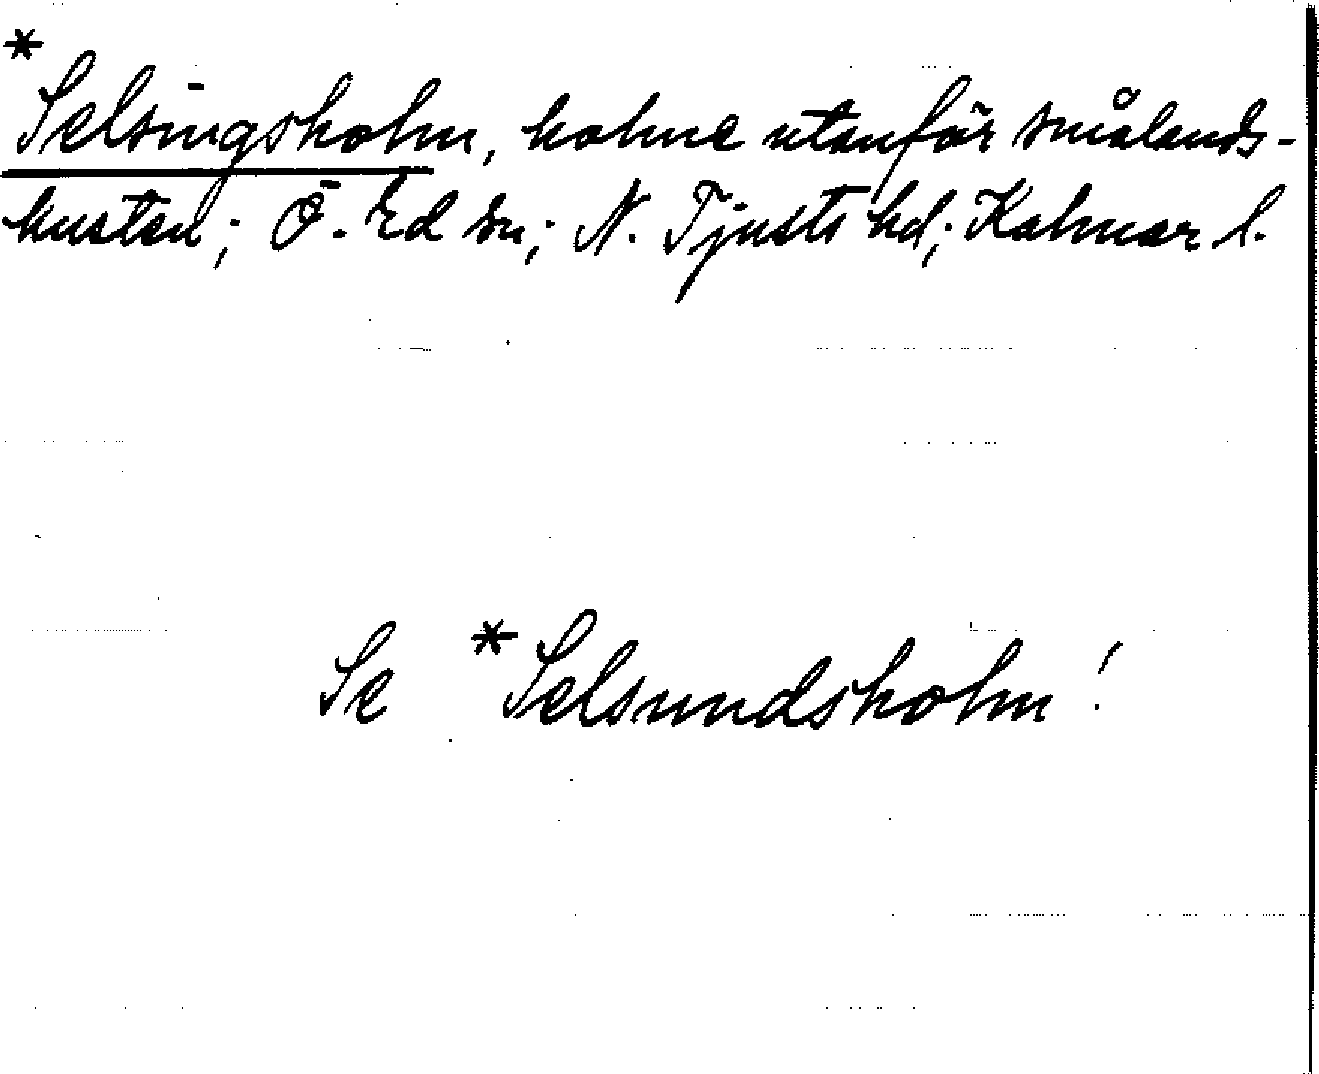 *Selsingsholm, holme utanför smålands-
kusten; Ö. Ed sn; N. Tjusts hd; Kalmar l.
Se *Selsundsholm!